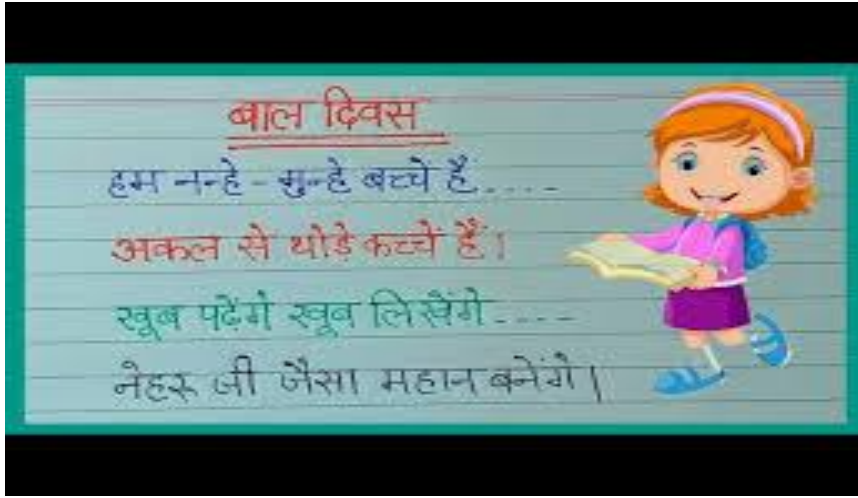 बाल दिवस
हम नन्हे - मुन्हे बच्चे हैं....
अकल से थोडे कच्चे हैं।
खूब पढेंगे खूब लिखेंगे....
नेहरू जी जैसा महान बनेंगे।